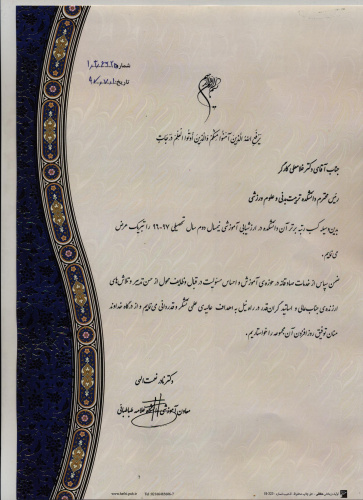 شماره:
تاریخ:
یَرفَعِ اللهُ الَّذینَ آمَنُوا مِنکُم وَالَّذینَ أُوتُوا العِلمَ دَرَجات
جناب آقای دکتر غلامعلی کارگر
رئیس محترم دانشکده تربیت بدنی و علوم ورزشی
بدین‌وسیله کسب رتبه برتر آن دانشکده در ارزشیابی آموزشی نیمسال دوم سال تحصیلی ۹۷-۹۶ را تبریک عرض
می‌نمایم.
ضمن سپاس از خدمات صادقانه در حوزه‌ی آموزش و احساس مسئولیت در قبال وظایف محول از حسن تدبیر و تلاش‌های
ارزنده‌ی جنابعالی و اساتید گران‌قدر در راه نیل به اهداف عالیه‌ی علمی تشکر و قدردانی می‌نمایم و از درگاه خداوند
منان توفیق روزافزون آن مجموعه را خواستاریم.
دکتر نادر نعمت الهی
معاون آموزشی دانشگاه علامه طباطبائی